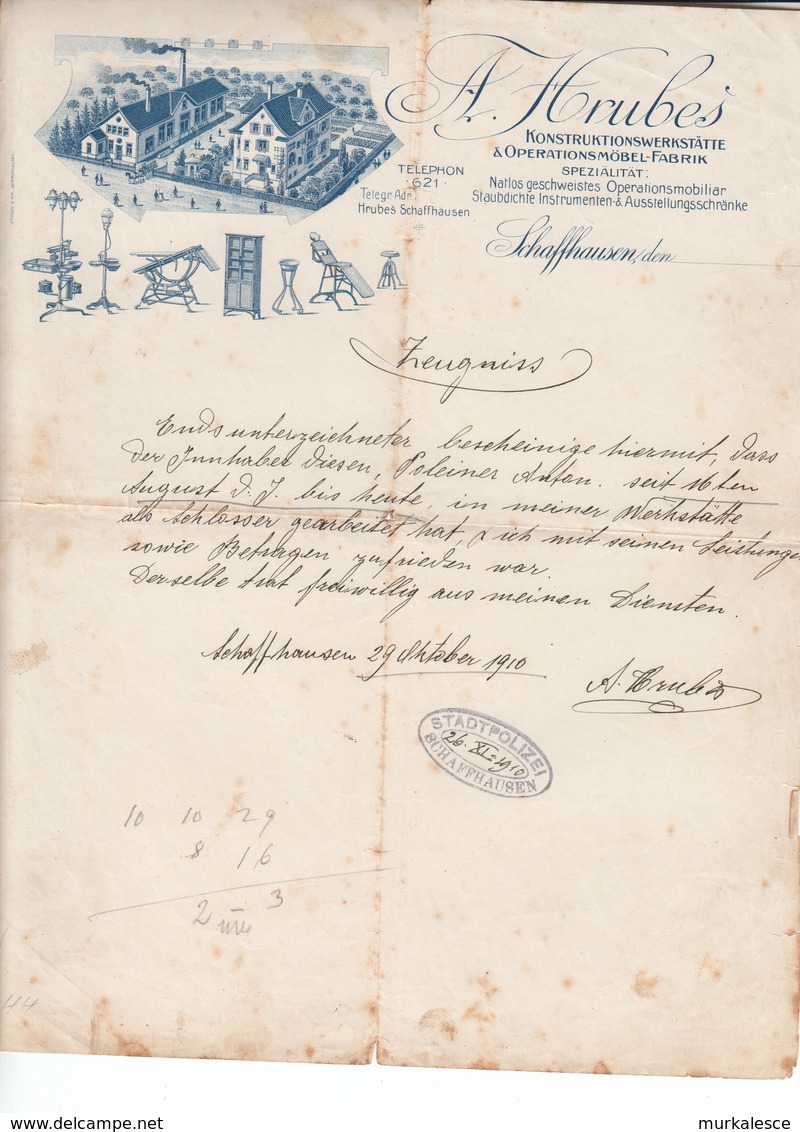 A. Hrubeš
KONSTRUKTIONSWERKSTÄTTE
& OPERATIONSMÖBEL-FABRIK
SPEZIALITÄT:
Natlos geschweistes Operationsmobiliar
Staubdichte Instrumenten- & Ausstellungsschränke
TELEPHON
·621·
Telegr. Adr.
Hrubeš Schaffhausen
Schaffhausen, den
Zeugniss
Endsunterzeichneter bescheinige hiermit, dass
der Innhaber diesen, Poleiner Anton. seit 16ten
August d. J. bis heute, in meiner Werkstätte
als Schlosser gearbeitet hat, & ich mit seinen Leistungen
sowie Betragen zufrieden war.
Derselbe trat freiwillig aus meinen Diensten.
Schaffhausen 29 Oktober 1910
A. Hrubeš
STADTPOLIZEI
26. XI. 1910
SCHAFFHAUSEN
10 10 29
8 16
2 3
44
delcampe.net
murkalesce